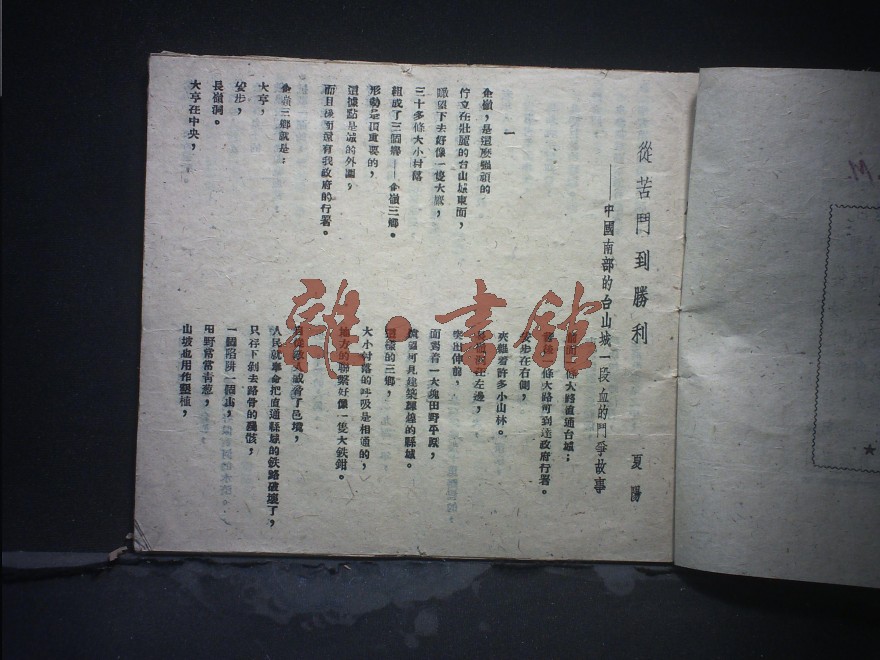 從苦鬥到勝利
——中國南部的台山城一段血的鬥爭故事
夏陽
一
金嶺,是這麼強頑的
佇立在壯麗的台山城東面,
瞭望下去好像一隻大
三十多條大小村落
組成了三個鄉——金嶺三鄉。
形勢是頂重要的,
這據點是城的外圍,
而且後面還有我政府的行署。
金嶺三鄉就是:
大亨,
安步,
長嶺洞。
大亨在中央,
條大路直通台城;
條大路可到達政府行署。
安步在右側,
夾雜着許多小山林。
在左邊,
突出伸前,
面對着一大塊田野平原,
可見建築輝煌的縣城。
這樣的三鄉,
大小村落的呼吸是相通的,
地方的聯繫好像一隻大鉄鉗。
了邑境,
人民就奉命把直通縣城的鉄路破壞了,
只存下剝去路骨的殘骸,
一個陷阱一個山,
田野常常青葱,
山坡也用作墾植,
雜·書館
M.